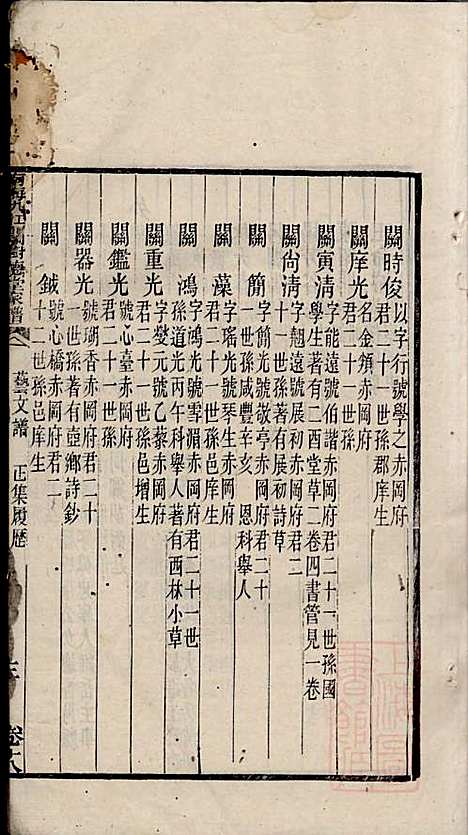 關時俊 以字行號學之赤岡府
君二十一世孫郡庠生
關庠光 名金領赤岡府
君二十一世孫
關寅清 字能遠號伯諧赤岡府君二十一世孫國
學生著有二酉堂草二卷四書管見一卷
關尙清 字翹遠號展初赤岡府君二
十一世孫著有展初詩草
關簡 字簡光號敬亭赤岡府君二十
一世孫咸豐辛亥 恩科舉人
關藻 字瑤光號琴生赤岡府
君二十一世孫邑庠生
關鴻 字鴻光號雪湄赤岡府君二十一世
孫道光丙午科舉人著有西林小草
關重光 字燮元號乙藜赤岡府
君二十一世孫邑增生
關鑑光 號心臺赤岡府
君二十一世孫
關器光 號瑚香赤岡府君二十
一世孫著有壺鄉詩鈔
關鉞 號心橋赤岡府君二
十二世孫邑庠生
家譜
藝文譜 正集履歷
卷十八
上海圖書館藏